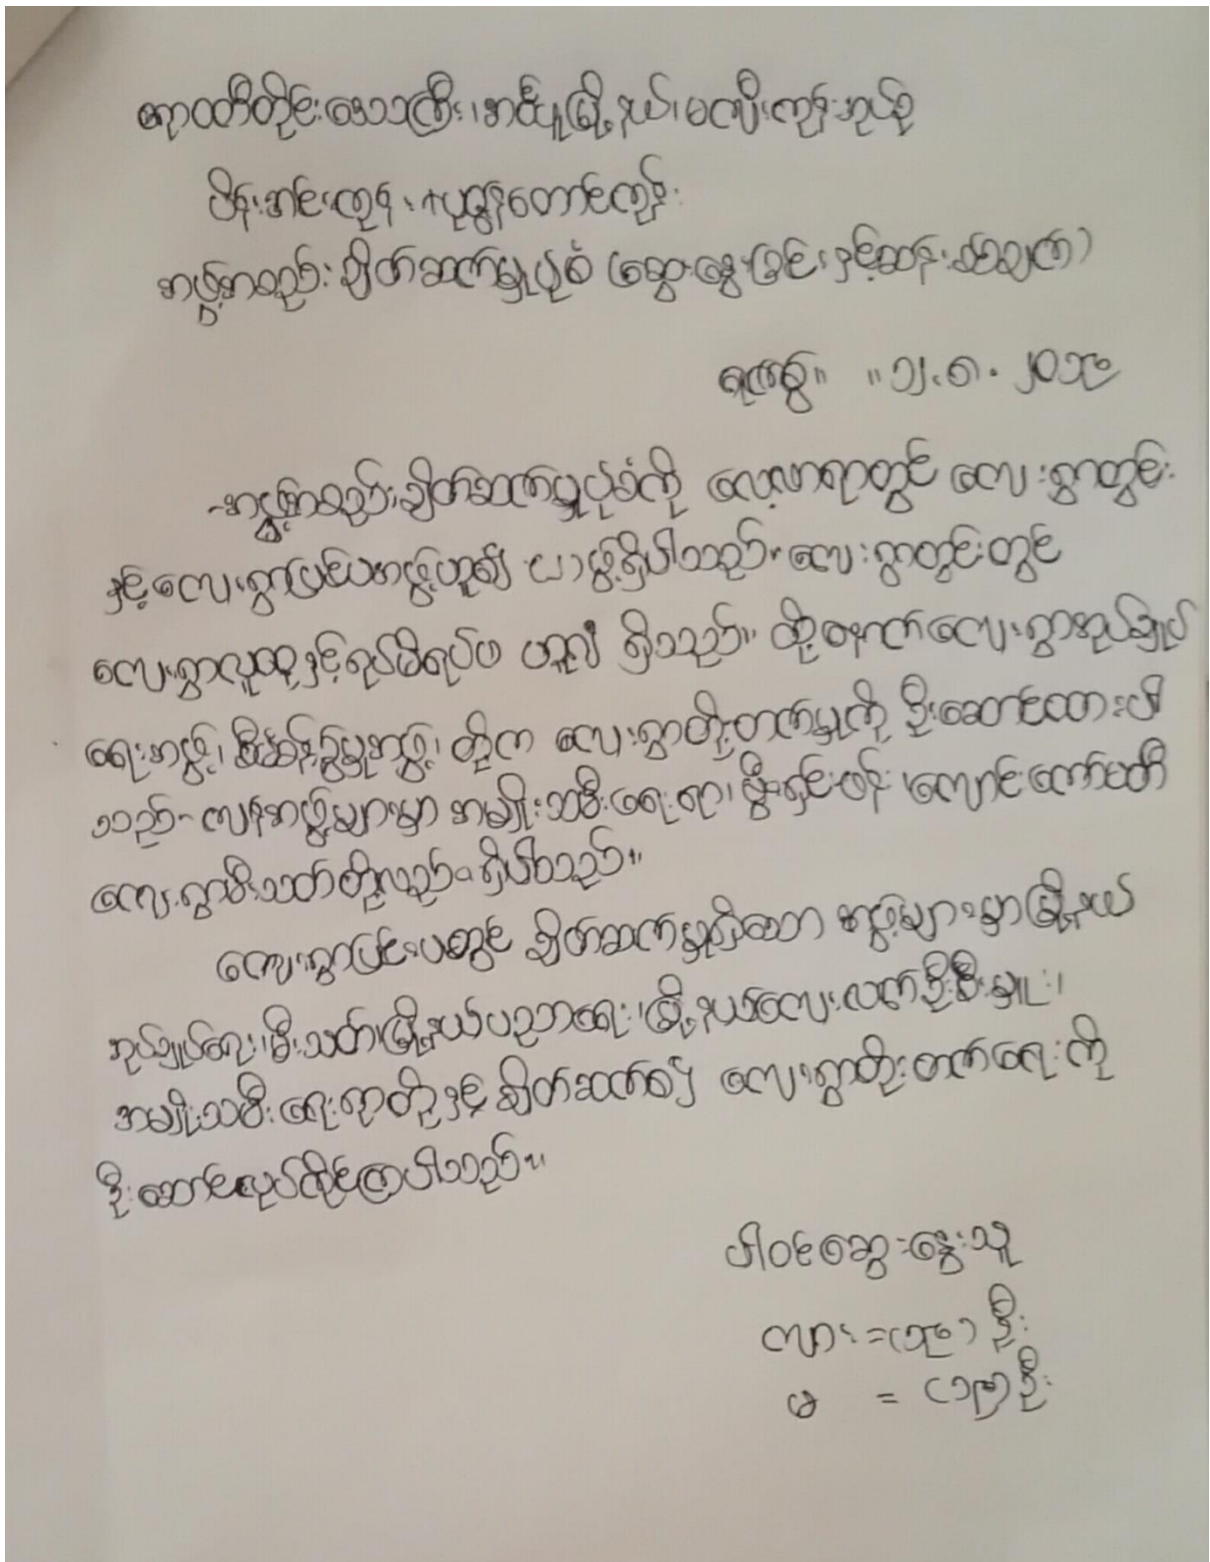 ဧရာဝတီတိုင်းဒေသကြီး၊ မြို့နယ်၊ မကျီးကုန်းအုပ်စု
ပိန္နဲအင်းကုန်း + ပုဇွန်တောင်ကုန်း
အဖွဲ့အစည်းချိတ်ဆက်မှုပုံစံ (ဆွေးနွေးခြင်းနှင့်ဆန်းစစ်ချက်)
ရက်စွဲ။ ။၁၂.၈.၂၀၁၉
-အဖွဲ့အစည်းချိတ်ဆက်မှုပုံစံကို လေ့လာရာတွင် ကျေးရွာတွင်း
နှင့်ကျေးရွာပြင်ပအဖွဲ့ဟူ၍ ၂ဖွဲ့ရှိပါသည်။ ကျေးရွာတွင်းတွင်
ကျေးရွာလူထုနှင့်ရပ်မိရပ်ဖ ဟူ၍ ရှိသည်။ ထို့နောက်ကျေးရွာအုပ်ချုပ်
ရေးအဖွဲ့၊ စီမံခန့်ခွဲမှုအဖွဲ့၊ တို့က ကျေးရွာတိုးတက်မှုကို ဦးဆောင်ထားပါ
သည်။ ကျန်အဖွဲ့များမှာ အမျိုးသမီးရေးရာ၊ မီးရှင်းဖန်၊ ကျောင်းကော်မတီ
ကျေးရွာမီးသတ်တို့လည်း ရှိပါသည်။
ကျေးရွာပြင်ပတွင် ချိတ်ဆက်မှုရှိသော အဖွဲ့များမှာမြို့နယ်
အုပ်ချုပ်ရေး၊ မီးသတ်၊ မြို့နယ်ပညာရေး၊ မြို့နယ်ကျေးလက်ဦးစီးမှူး၊
အမျိုးသမီးရေးရာတို့နှင့် ချိတ်ဆက်၍ ကျေးရွာတိုးတက်ရေးကို
ဦးဆောင်လုပ်ကိုင်ကြပါသည်။
ပါဝင်ဆွေးနွေးသူ
ကျား = (၁၉) ဦး
မ = (၁၅) ဦး